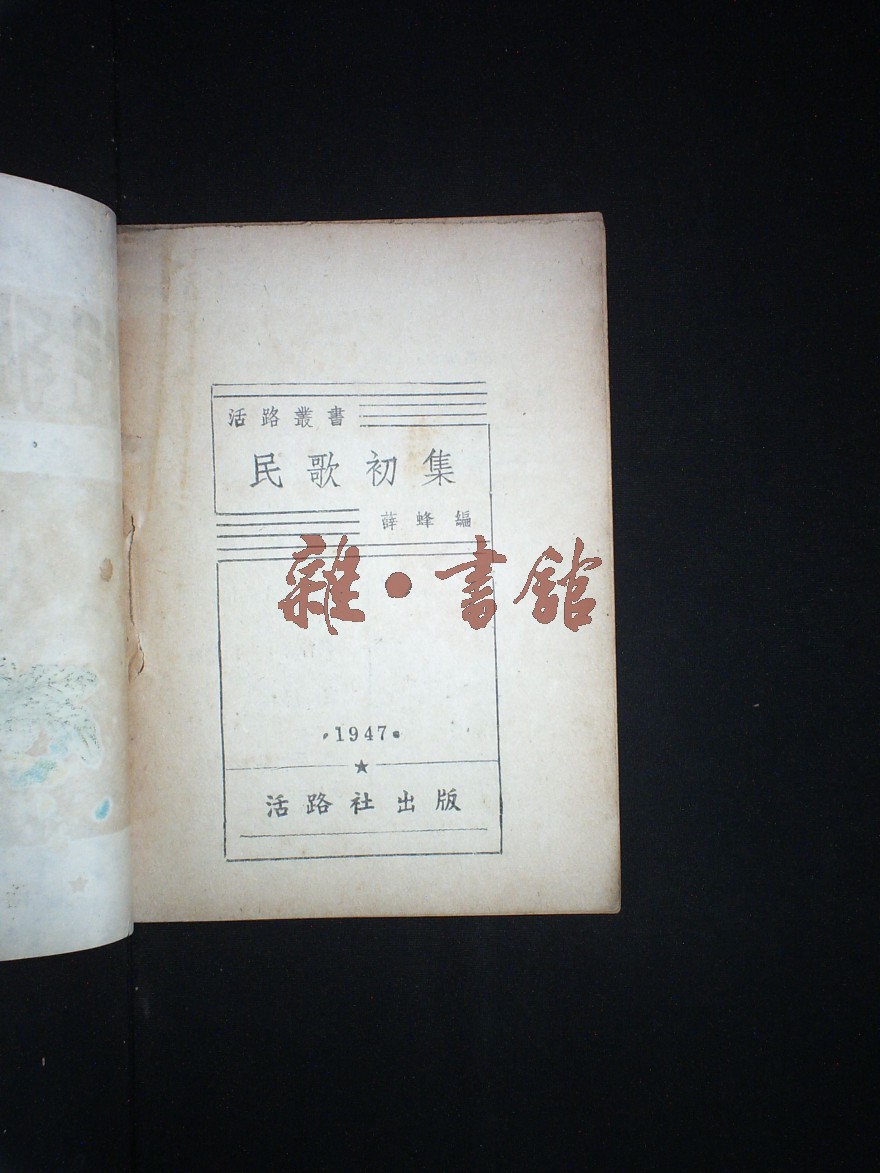 活路叢書
民歌初集
薛蜂編
雜·書舘
·1947·
★
活路社出版